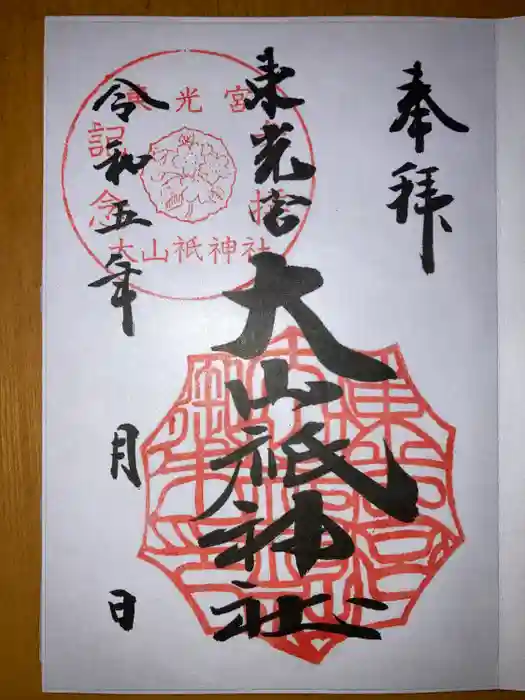 奉拝
東光宮
大山祇神社
令和五年
月
日
東光宮
記念
大山祇神社